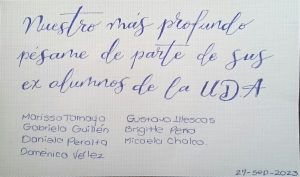 Nuestro más profundo
pésame de parte de sus
ex alumnos de la UDA
Marissa Tamayo Gustavo Illescas
Gabriela Guillén Brigitte Peña
Daniela Peralta Micaela Chalco.
Doménica Vélez
27-sep-2023